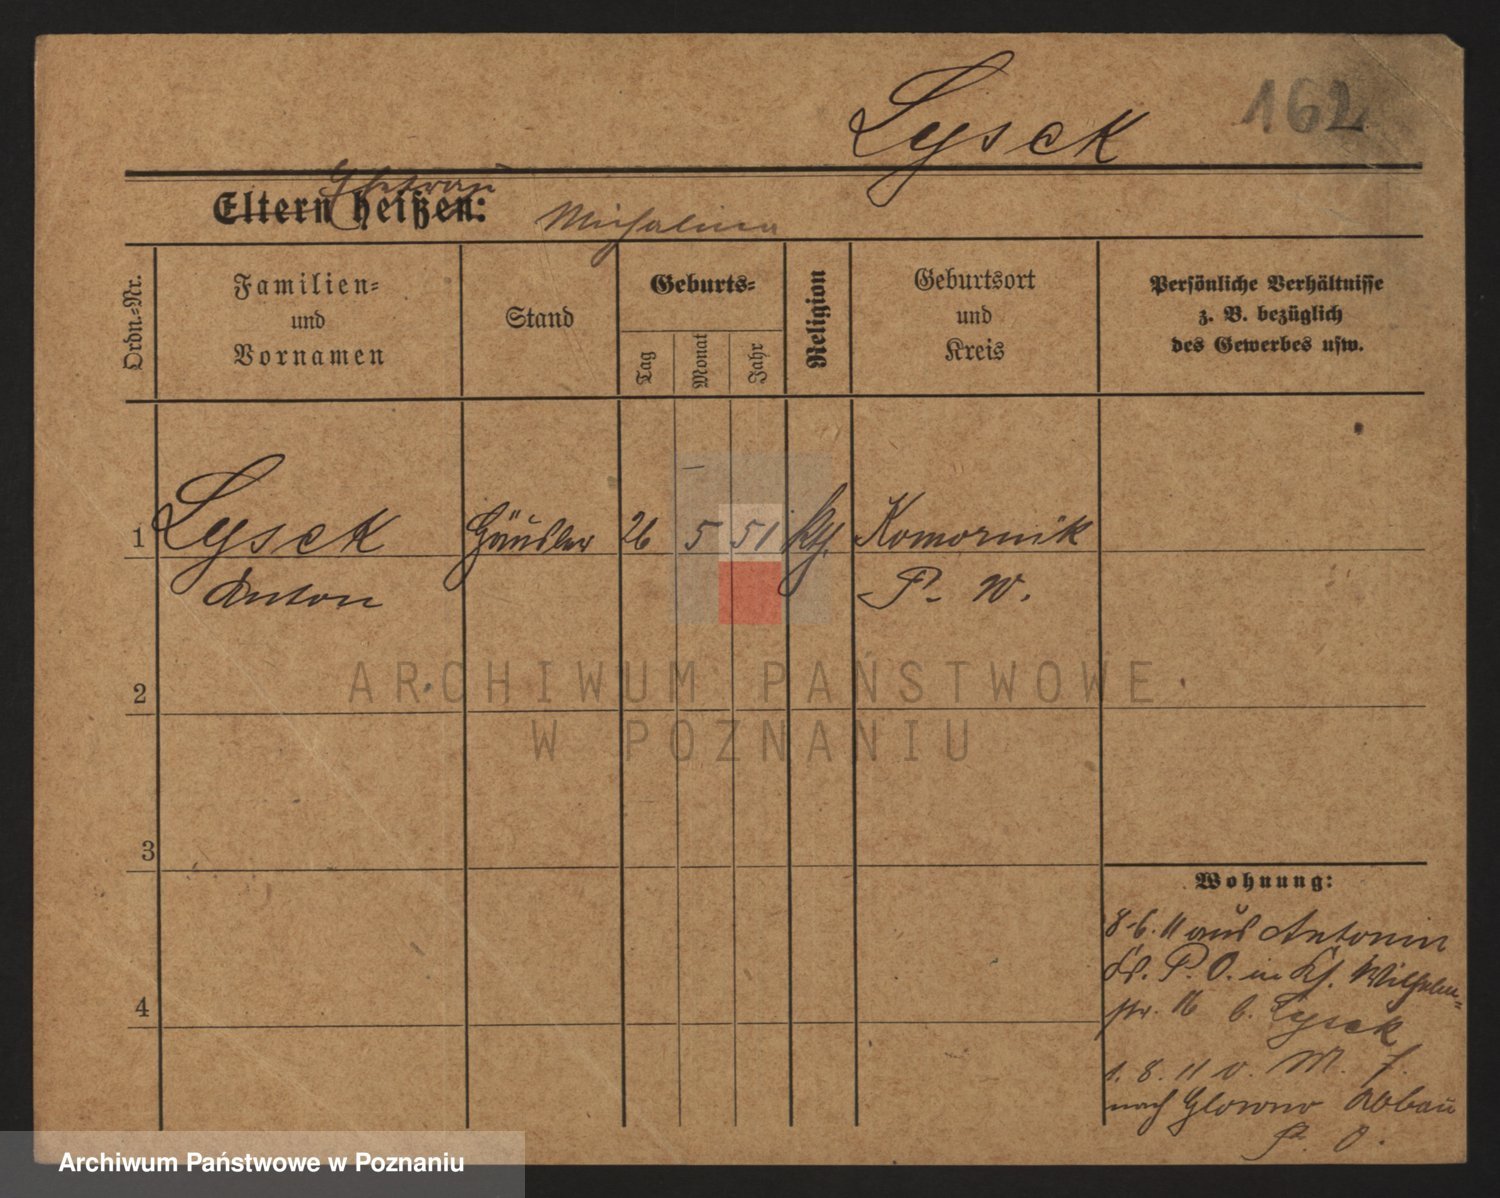 Lysek 162
Eltern heißen: Ehefrau Michalina
Ordn.-Nr.
Familien-
und
Vornamen
Stand
Geburts-
Tag
Monat
Jahr
Religion
Geburtsort
und
Kreis
Persönliche Verhältnisse
z. B. bezüglich
des Gewerbes usw.
1 Lysek Häusler 26 5 51 kth. Komornik
Anton P. W.
2
3
4
Wohnung:
8.6.11 aus Antonin
Kr. P. O. in Wilhelm-
str. 16 b. Lysek
1. 8. 11 v. M. 7.
nach Glowno Abbau
P. O.
ARCHIWUM PAŃSTWOWE
W POZNANIU
Archiwum Państwowe w Poznaniu